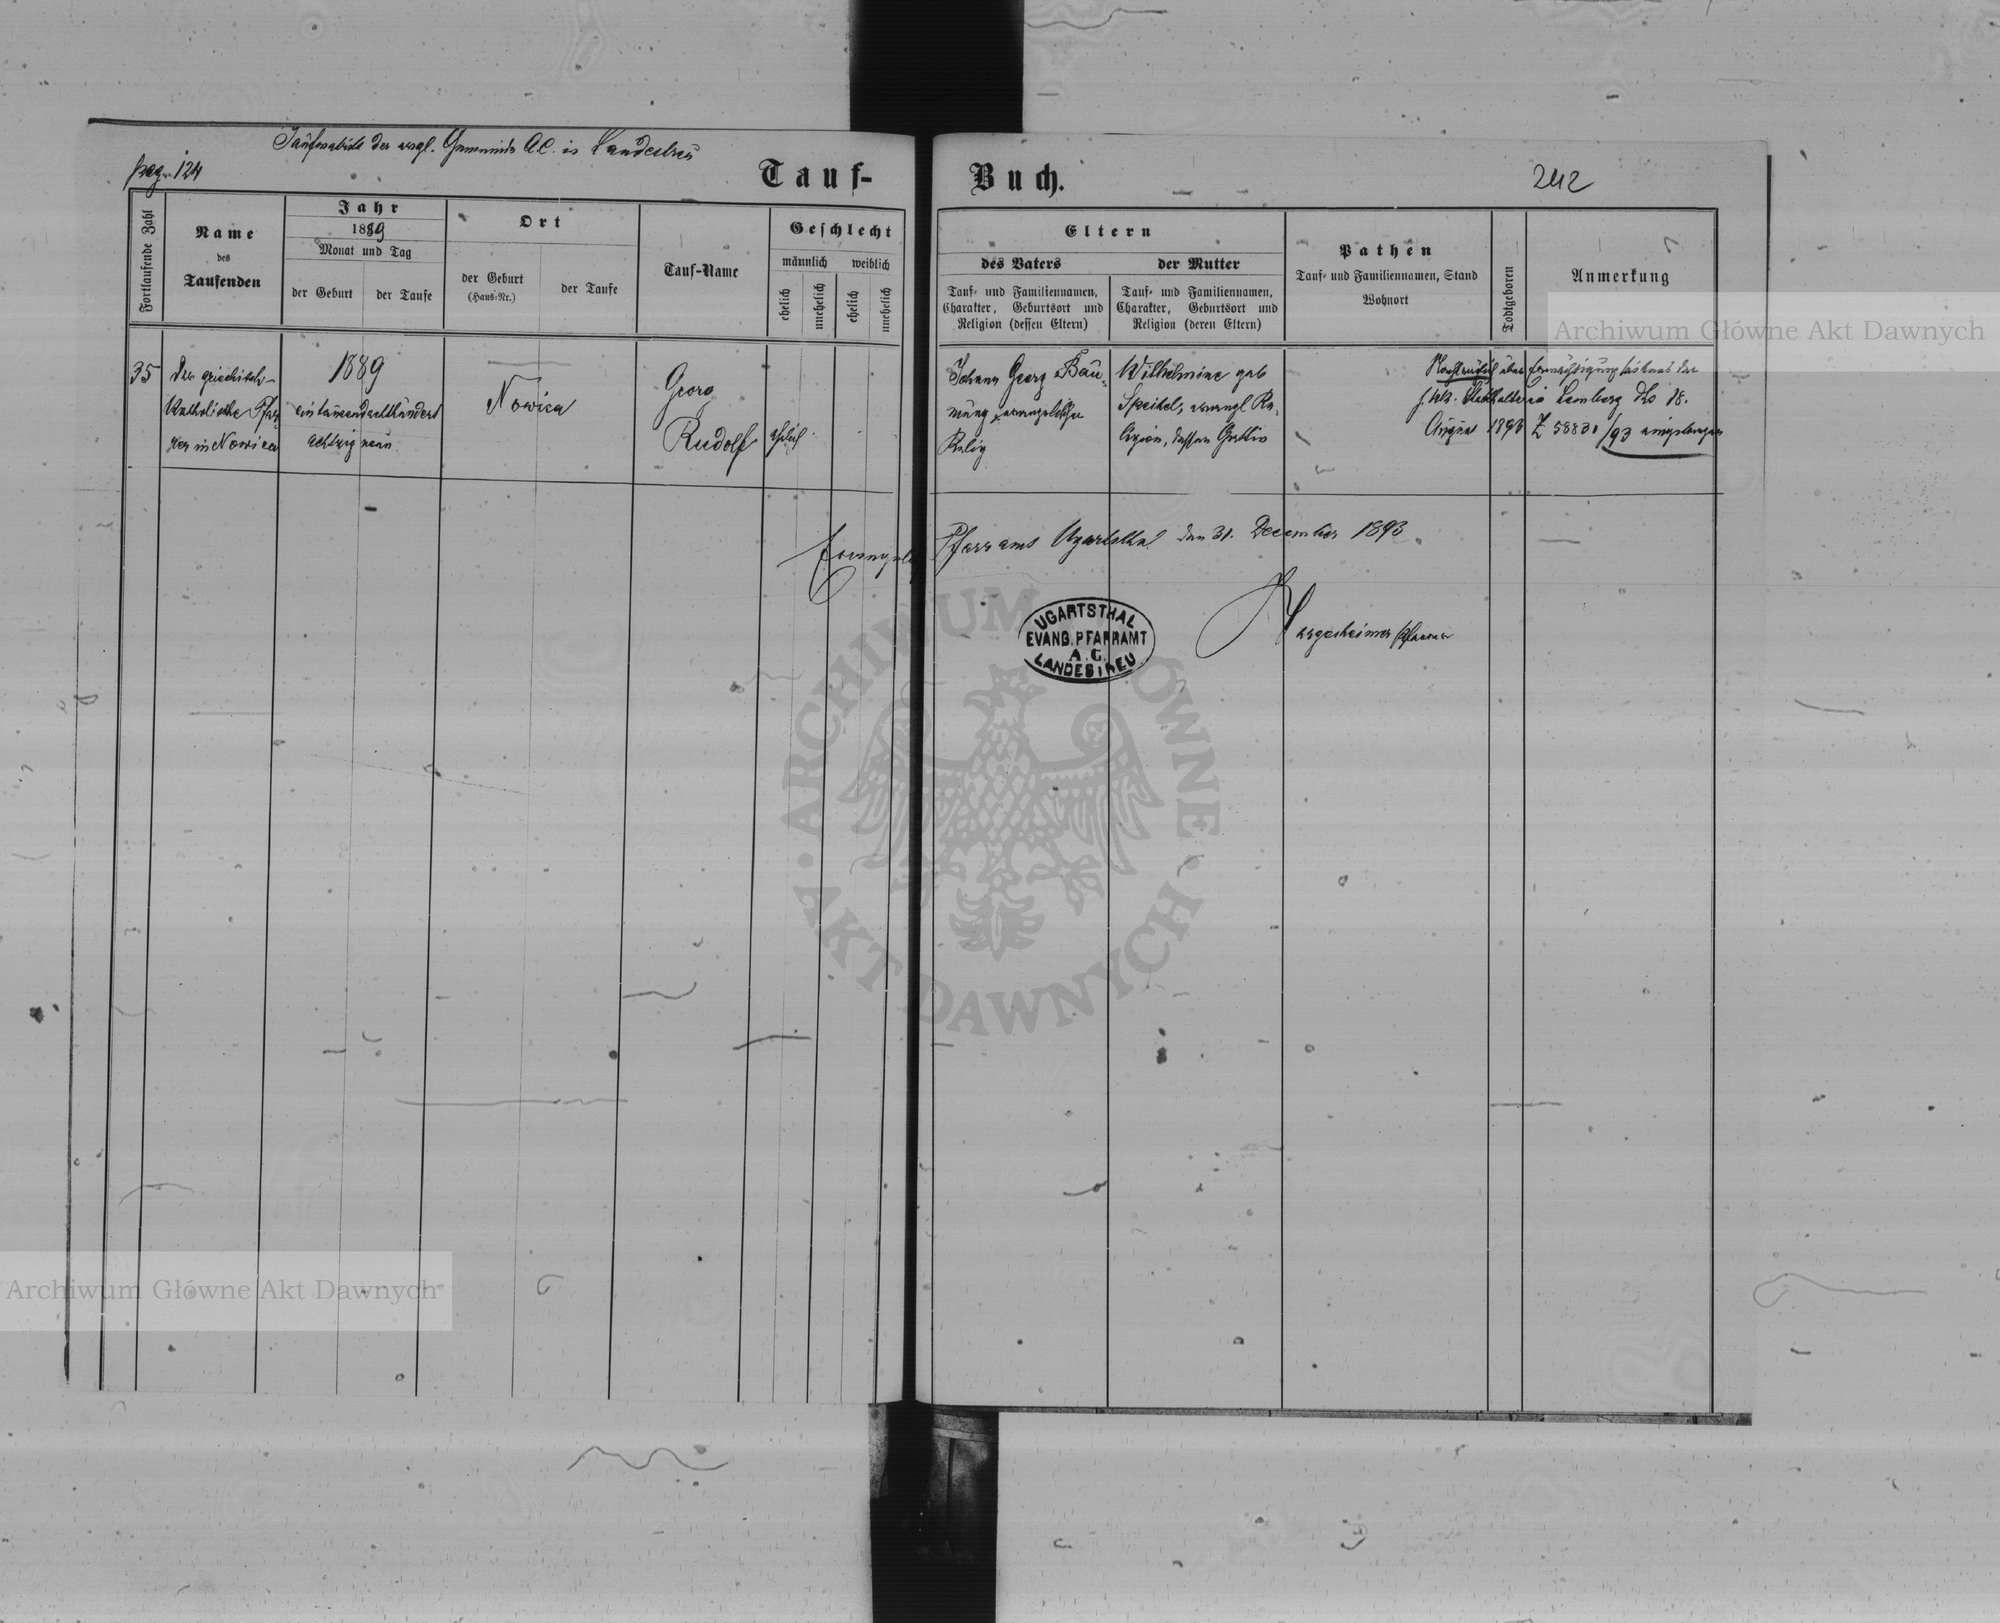 Taufmatrik der evgl. Gemeinde A.C. in Landestreu
pag. 124
Tauf-
Buch.
242
Fortlaufende Zahl
Name
des
Taufenden
Jahr
1889
Monat und Tag
der Geburt
der Taufe
Ort
der Geburt
(Haus-Nr.)
der Taufe
Tauf-Name
Geschlecht
männlich
weiblich
ehelich
unehelich
ehelich
unehelich
Eltern
des Vaters
der Mutter
Tauf- und Familiennamen,
Charakter, Geburtsort und
Religion (dessen Eltern)
Tauf- und Familiennamen,
Charakter, Geburtsort und
Religion (deren Eltern)
Pathen
Tauf- und Familiennamen, Stand
Wohnort
Todtgeboren
Anmerkung
35
Der griechisch-
katholische Pfar-
rer in Nowica
1889
eintausendachthundert
achtzig neun
Nowica
Georg
Rudolf
ehelich
Johann Georg Bau-
mung, evangelischer
Relig
Wilhelmine geb
Speikel, evangl Re-
ligion, dessen Gattin
Nachträglich über Ermächtigung der
k.k. Statthalterei Lemberg dto 18.
August 1893 Z 58831/93 eingetragen
Evangel. Pfarramt Ugartsthal den 31. December 1893
UGARTSTHAL
EVANG. PFARRAMT
A.C.
LANDESTREU
Hargesheimer Pfarrer
Archiwum Główne Akt Dawnych
ARCHIWUM GŁÓWNE
AKT DAWNYCH
Archiwum Główne Akt Dawnych